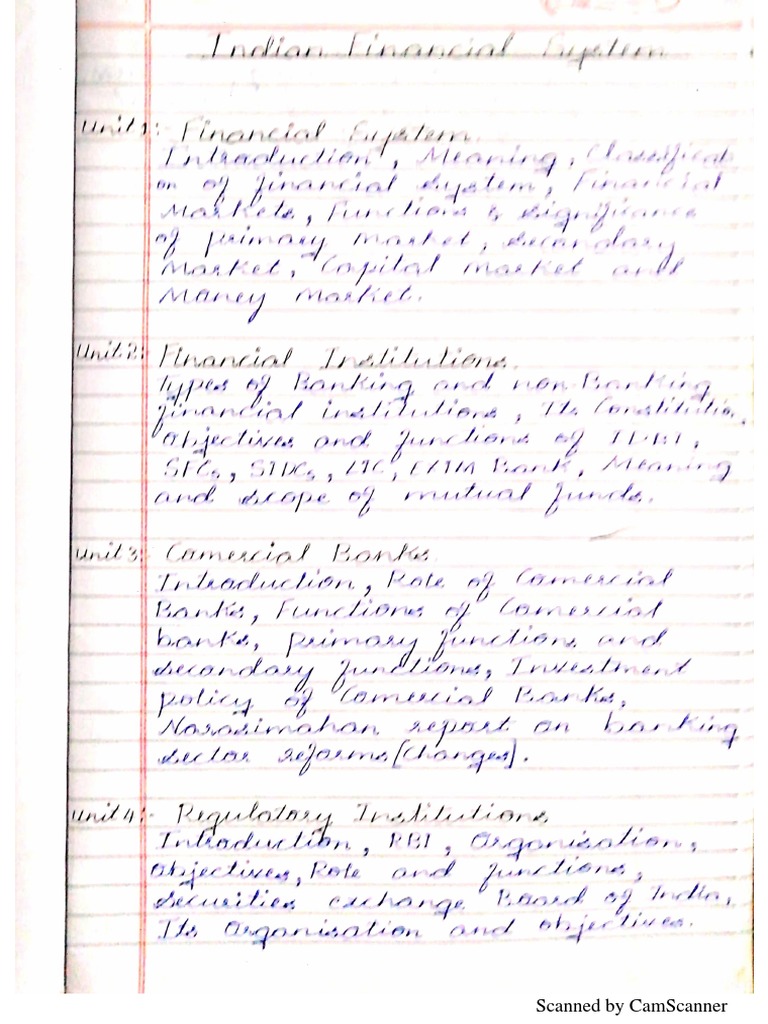 Indian Financial System
Unit 1: Financial System.
Introduction, Meaning, Classificati
on of financial system, Financial
Markets, Functions & significance
of primary market, secondary
market, Capital market and
Money market.
Unit 2: Financial Institutions.
Types of Banking and non-Banking
financial institutions, Its Constitutio
objectives and functions of IDBI,
SFCs, SIDCs, LIC, EXIM Bank, Meaning
and scope of mutual funds.
Unit 3: Comercial Banks.
Introduction, Role of Comercial
Banks, Functions of Comercial
banks, primary functions and
secondary functions, Investment
policy of Comercial Banks,
Narasimahan report on banking
sector reforms [changes].
Unit 4:- Regulatory Institutions
Introduction, RBI, Organisation,
objectives, Role and functions,
Securities exchange Board of India,
Its organisation and objectives.
Scanned by CamScanner